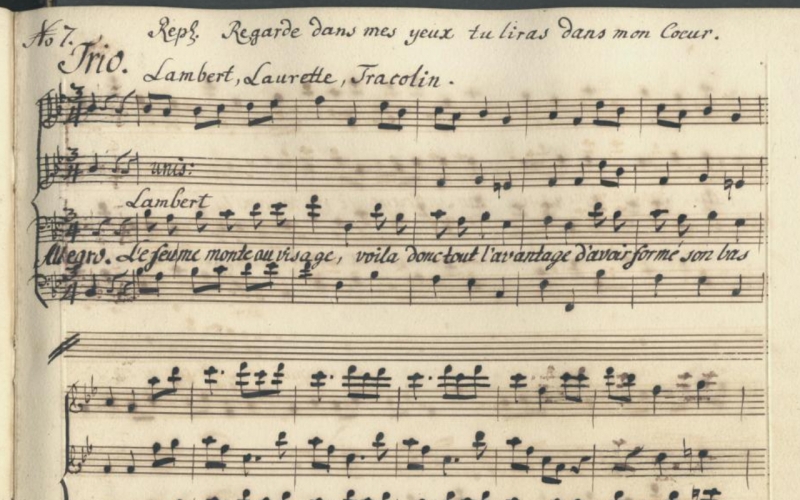 No 7. Repl. Regarde dans mes yeux tu liras dans mon Coeur.
Trio. Lambert, Laurette, Tracolin.
unis:
Lambert
Allegro. Le feu me monte au visage, voila donc tout l'avantage d'avoir formé son bas